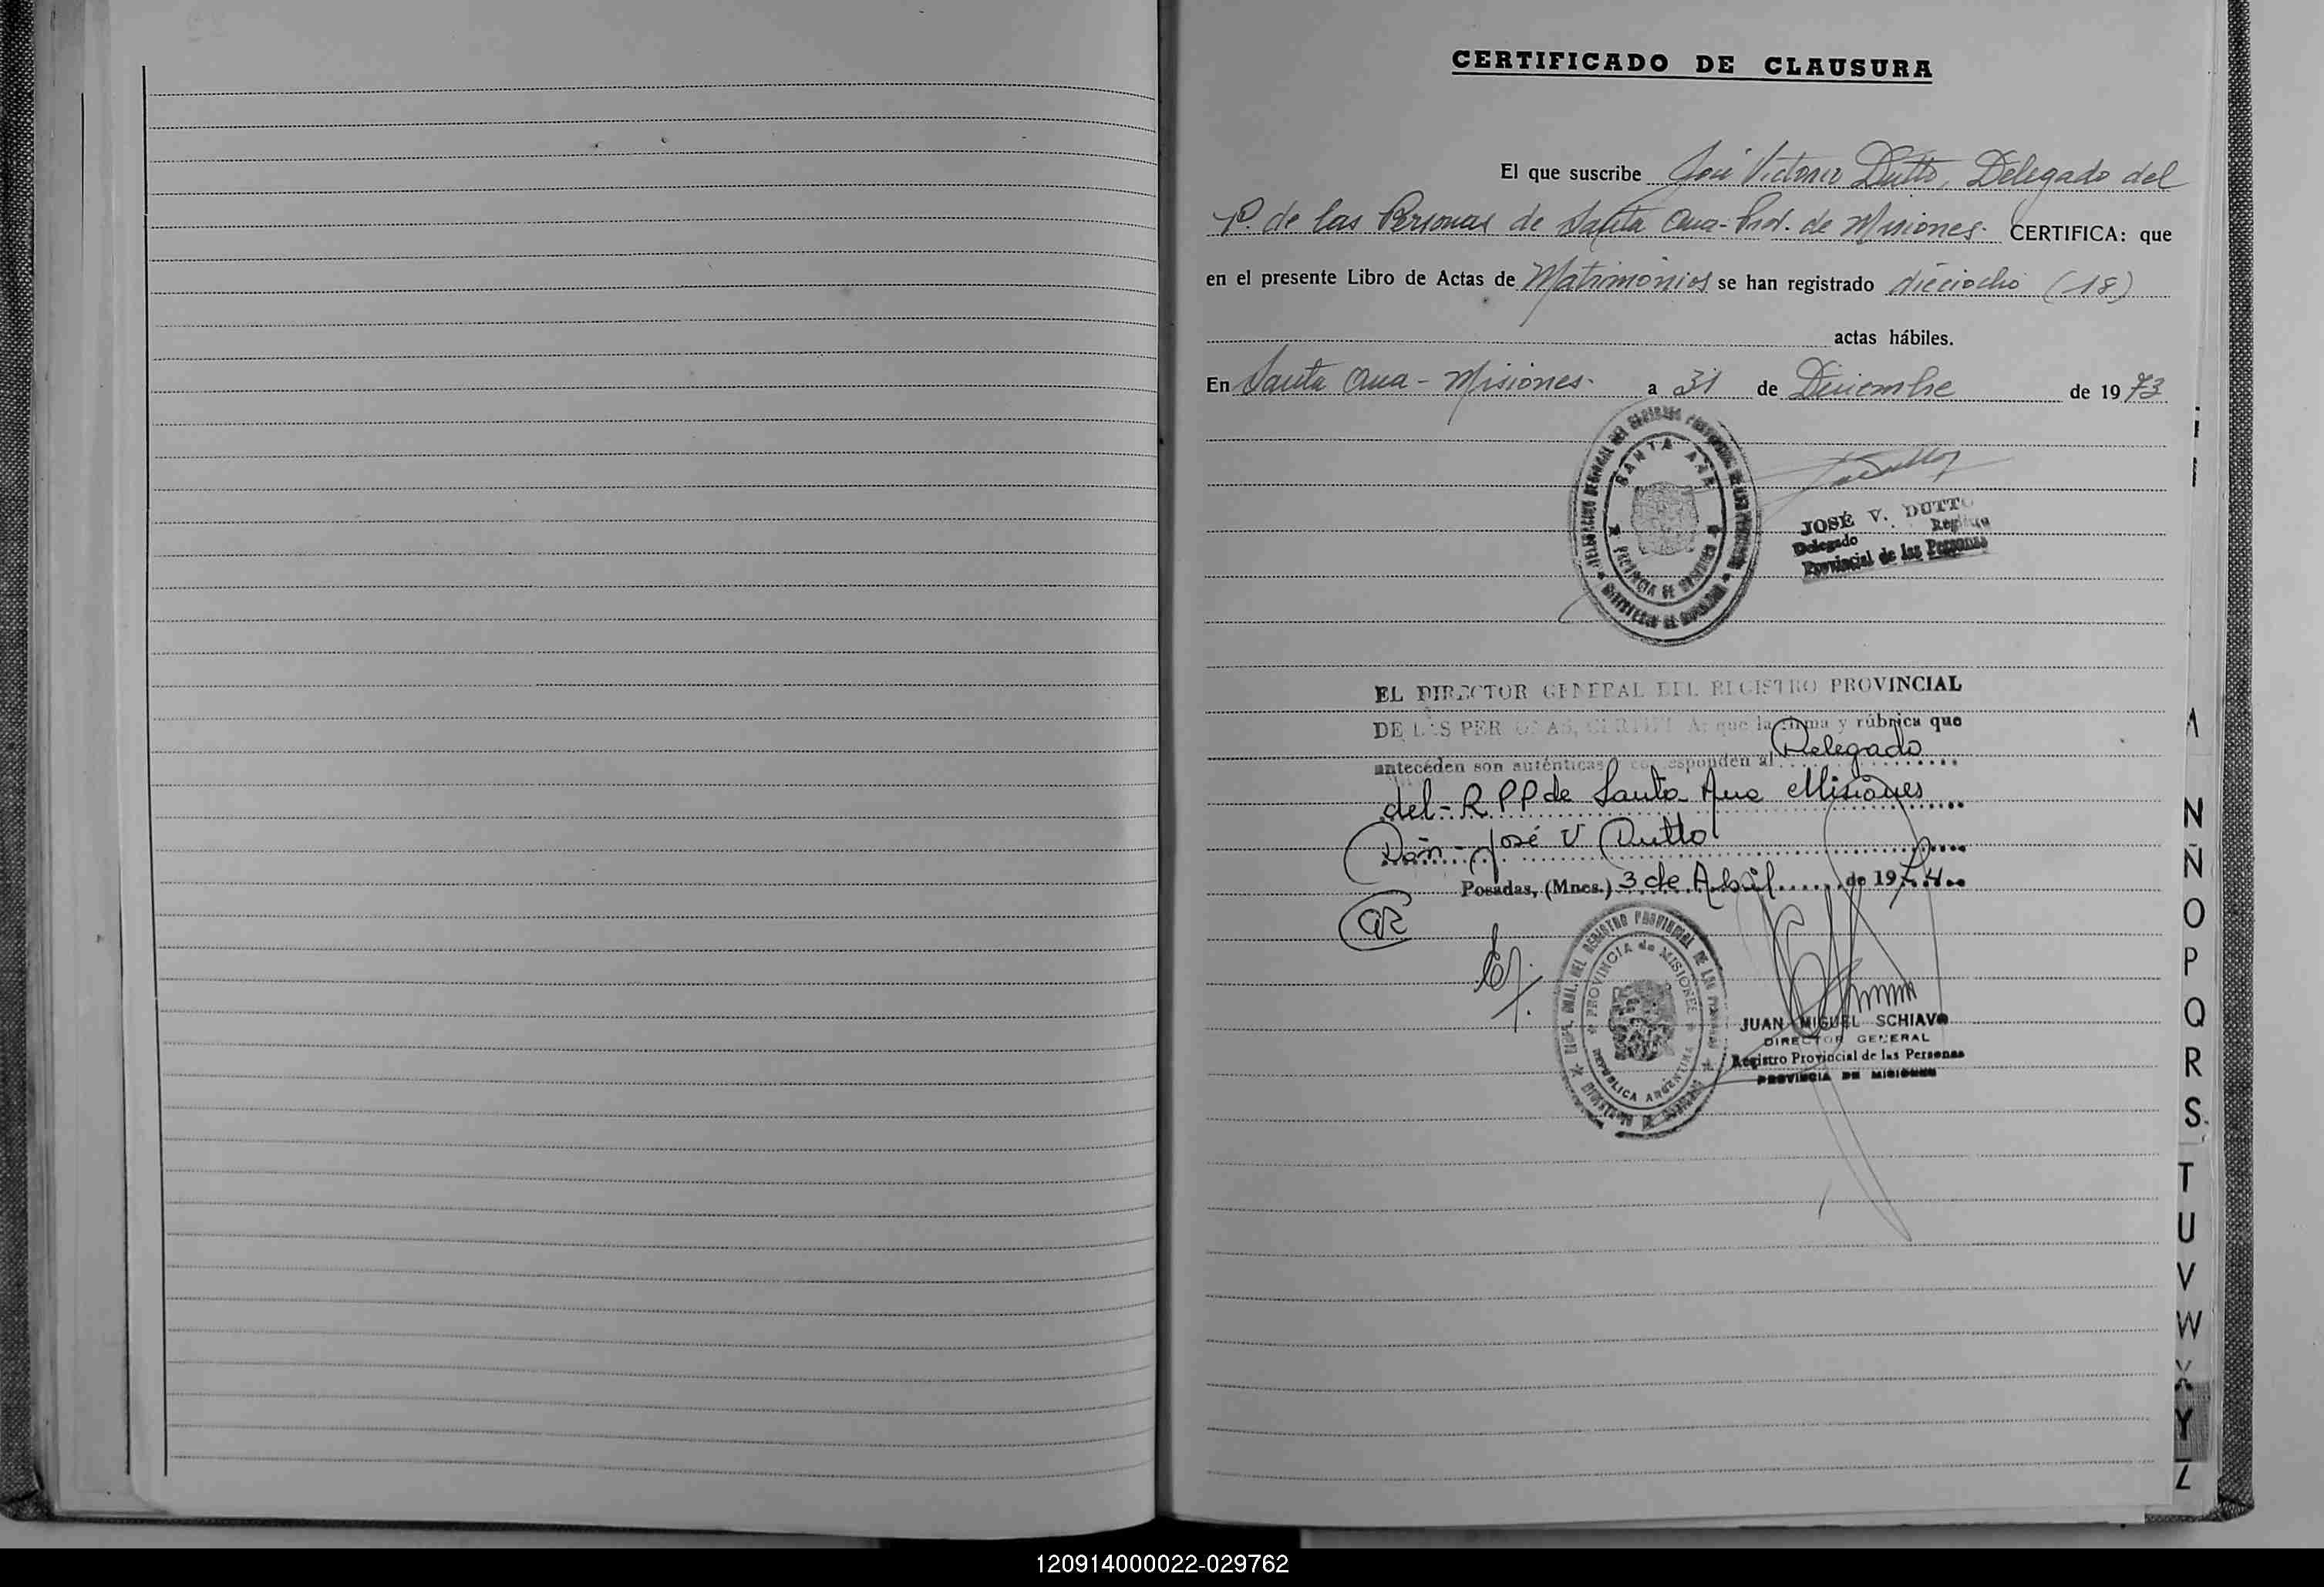 CERTIFICADO DE CLAUSURA
El que suscribe José Victorio Dutto, Delegado del
P. de las Personas de Santa Ana - Prov. de Misiones. CERTIFICA: que
en el presente Libro de Actas de Matrimonios se han registrado dieciocho (18)
actas hábiles.
En Santa Ana - Misiones. a 31 de Diciembre de 1973
SANTA ANA
PROVINCIA DE MISIONES
JOSÉ V. DUTTO
Delegado Registro
Provincial de las Personas
EL DIRECTOR GENERAL DEL REGISTRO PROVINCIAL
DE LAS PERSONAS, CERTIFICA: que la firma y rúbrica que
anteceden son auténticas y corresponden al Delegado
del - R P P de Santa Ana Misiones
Don - José V Dutto
Posadas, (Mnes.) 3 de Abril de 1974
REGISTRO PROVINCIAL DE LAS PERSONAS
PROVINCIA de MISIONES
REPUBLICA ARGENTINA
JUAN MIGUEL SCHIAVO
DIRECTOR GENERAL
Registro Provincial de las Personas
PROVINCIA DE MISIONES
N
Ñ
O
P
Q
R
S
T
U
V
W
X
Y
Z
120914000022-029762